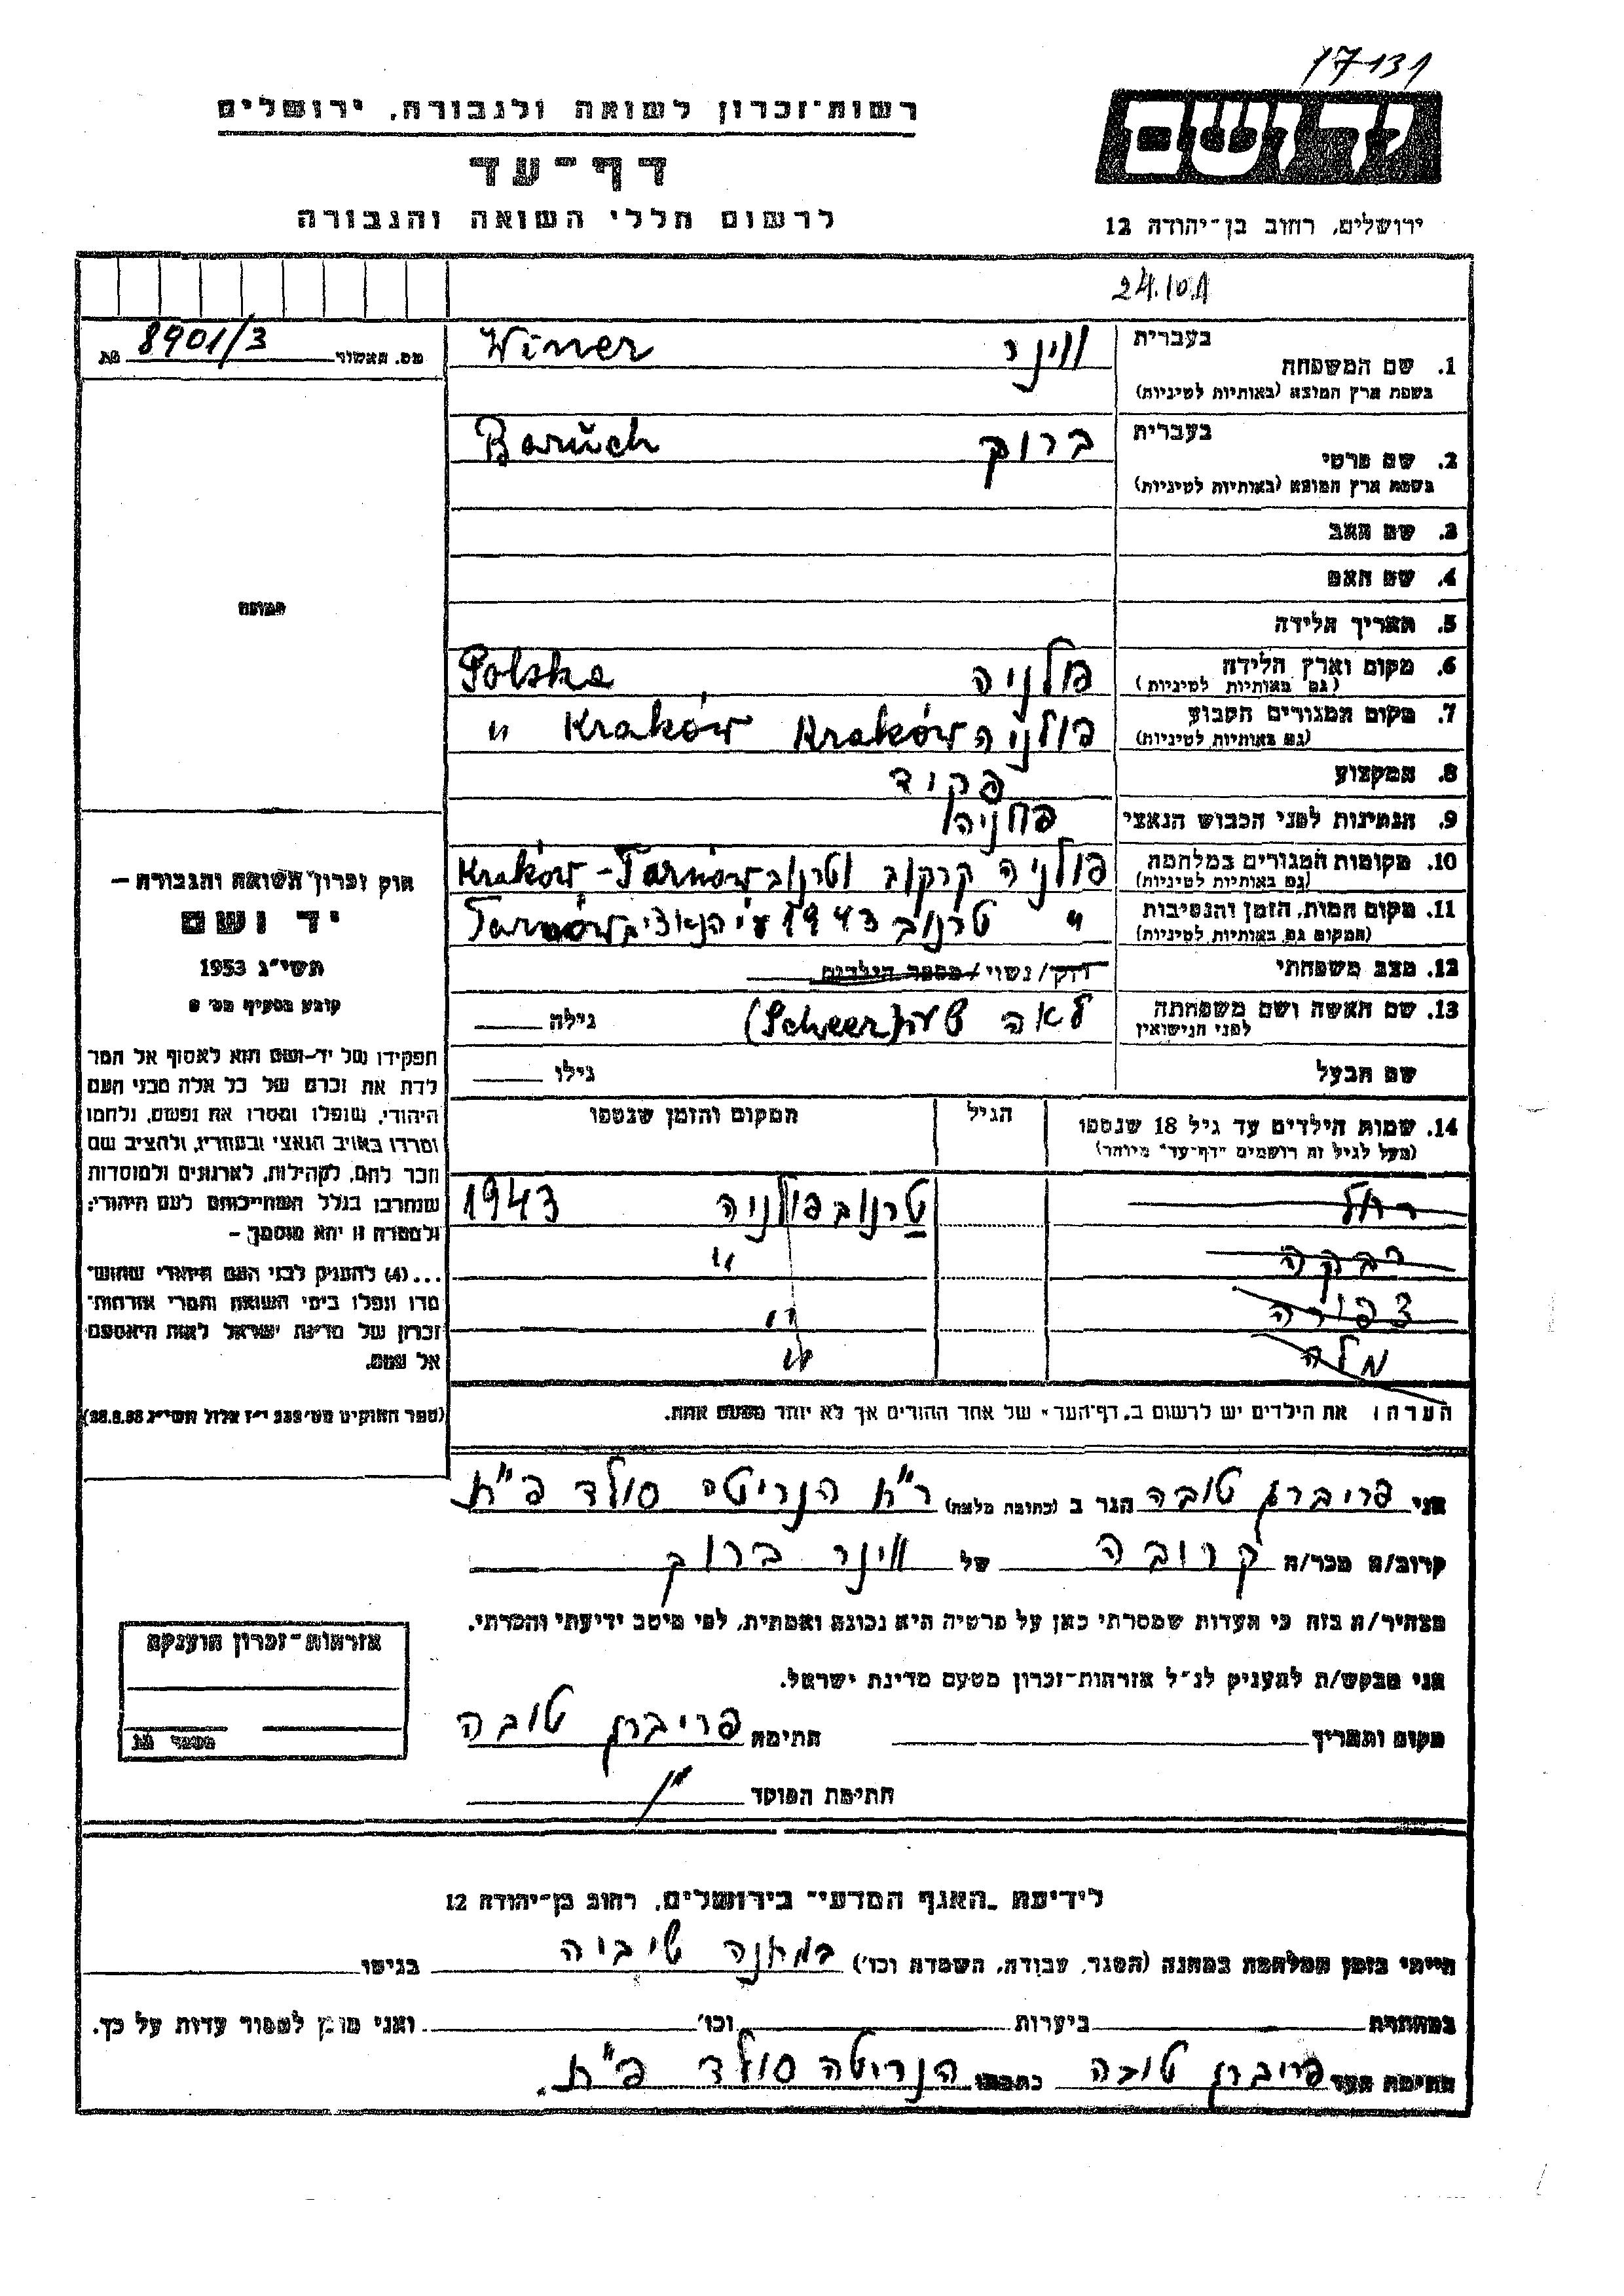 17131
ידושם
רשות־זכרון לשואה ולגבורה, ירושלים
דף־עד
לרשום חללי השואה והגבורה
ירושלים, רחוב בן־יהודה 12
24.10.
מס. האשור 8901/3
תמונה
חוק זכרון השואה והגבורה —
יד ושם
תשי״ג 1953
קובע בסעיף מס׳ 2
תפקידו של יד־ושם הוא לאסוף אל המו
לדת את זכרם של כל אלה מבני העם
היהודי, שנפלו ומסרו את נפשם, נלחמו
ומרדו באויב הנאצי ובעוזריו, ולהציב שם
וזכר להם, לקהילות, לארגונים ולמוסדות
שנחרבו בגלל השתייכותם לעם היהודי;
ולמטרה זו יהא מוסמך —
...(4) להעניק לבני העם היהודי שהוש־
מדו ונפלו בימי השואה והמרי אזרחות־
זכרון של מדינת ישראל לאות היאספם
אל עמם.
(ספר החוקים מס׳ 132 י״ז אלול תשי״ג 28.8.53)
1. שם המשפחה בעברית ווינר Winer
בשפת ארץ המוצא (באותיות לטיניות)
2. שם פרטי בעברית ברוך Baruch
בשפת ארץ המוצא (באותיות לטיניות)
3. שם האב
4. שם האם
5. תאריך הלידה
6. מקום וארץ הלידה פולניה Polska
(גם באותיות לטיניות)
7. מקום המגורים הקבוע פולניה Kraków Kraków "
(גם באותיות לטיניות)
8. המקצוע פקיד
9. הנתינות לפני הכבוש הנאצי
10. מקומות המגורים במלחמה פולניה קרקוב וטרנוב Kraków - Tarnów
(גם באותיות לטיניות)
11. מקום המות, הזמן והנסיבות " טרנוב 1943 ע״י הנאצים Tarnów
(המקום גם באותיות לטיניות)
12. מצב משפחתי רוק/ נשוי / מספר הילדים
13. שם האשה ושם משפחתה לאה שער (Scheer) גילה
לפני הנישואין
שם הבעל גילו
14. שמות הילדים עד גיל 18 שנספו הגיל המקום והזמן שנספו
(מעל לגיל זה רושמים ״דף־עד״ מיוחד)
רחל טרנוב פולניה 1943
רבקה "
צפורה "
מלה "
הערה: את הילדים יש לרשום ב„דף־העד״ של אחד ההורים אך לא יותר מפעם אחת.
אני פריברג טובה הגר ב (כתובת מלאה) ר״ח הנריטה סולד פ״ת
קרוב/ה מכר/ה קרובה של ווינר ברוך
מצהיר/ה בזה כי העדות שמסרתי כאן על פרטיה היא נכונה ואמתית, לפי מיטב ידיעתי והכרתי.
אני מבקש/ת להעניק לנ״ל אזרחות־זכרון מטעם מדינת ישראל.
מקום ותאריך חתימה פריברג טובה
חתימת הפוקד
אזרחות־זכרון הוענקה
מספר
לידיעת „האגף המדעי״ בירושלים, רחוב בן־יהודה 12
הייתי בזמן המלחמה במחנה (הסגר, עבודה, השמדה וכו׳) במחנה בגיטו
במחתרת ביערות וכו׳ ואני מוכן למסור עדות על כך.
חתימת העד פריברג טובה כתבתו הנריטה סולד פ״ת.